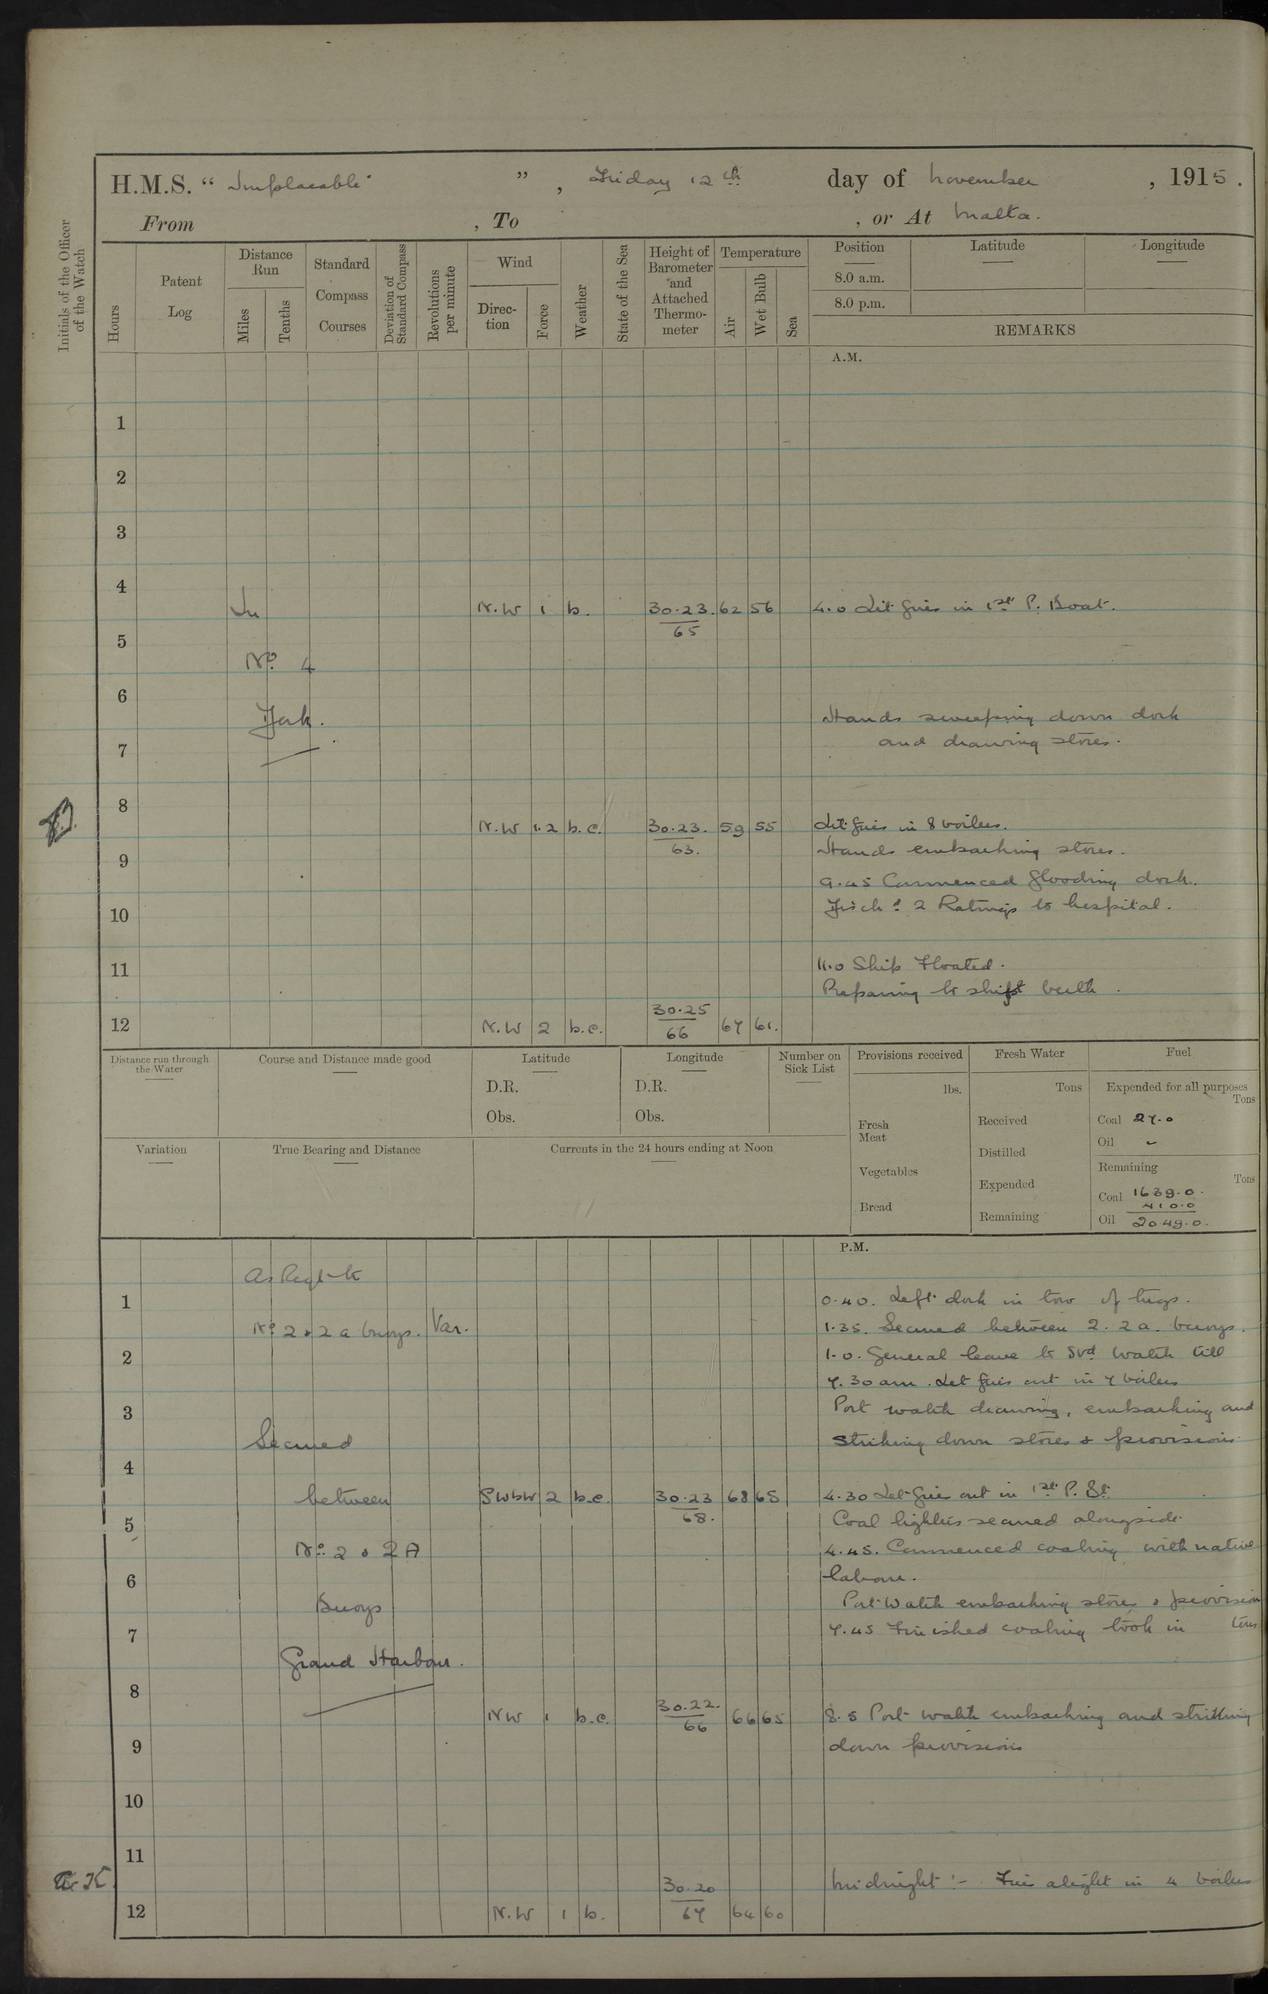 H.M.S. “ Implacable ” , Friday 12th day of November , 1915 .
From , To , or At Malta.
Initials of the Officer of the Watch
Hours
Patent Log
Distance Run
Miles
Tenths
Standard Compass Courses
Deviation of Standard Compass
Revolutions per minute
Wind
Direction
Force
Weather
State of the Sea
Height of Barometer and Attached Thermometer
Temperature
Air
Wet Bulb
Sea
Position
8.0 a.m.
8.0 p.m.
Latitude
Longitude
REMARKS
A.M.
1
2
3
4
In N.W 1 b. 30.23. 65 62 56 4.0 Lit fires in 1st P. Boat.
5
No. 4
6
Hands sweeping down dock
and drawing stores.
7
8
N.W 1.2 b.c. 30.23. 63. 59 55 Lit fires in 8 boilers.
Hands embarking stores.
9
9.45 Commenced flooding dock.
2 Ratings to hospital.
10
11
11.0 Ship Floated.
Preparing to shift berth.
12 N.W 2 b.c. 30.25 66 67 61.
Distance run through the Water
Course and Distance made good
Latitude
D.R.
Obs.
Longitude
D.R.
Obs.
Number on Sick List
Provisions received
lbs.
Fresh Meat
Vegetables
Bread
Fresh Water
Tons
Received
Distilled
Expended
Remaining
Fuel
Expended for all purposes
Tons
Coal 27.0
Oil -
Remaining
Tons
Coal 1639.0.
410.0
Oil 2049.0.
Variation
True Bearing and Distance
Currents in the 24 hours ending at Noon
P.M.
As Reqd to
1
0.40. Left dock in tow of tugs.
No 2 & 2a buoys. Var. 1.35. Secured between 2. 2a. buoys.
2
1.0. General leave to Stbd Watch till
7.30 am. Let fires out in 4 boilers
3
Port watch drawing, embarking and
Secured striking down stores & provisions.
4
between SWbW 2 b.c. 30.23 68. 68 65 4.30 Let fires out in 1st P. Bt.
5
Coal lighters secured alongside.
No. 2 & 2A 4.45. Commenced coaling with native
6
labour.
Buoys Port Watch embarking stores & provision
7
7.45 Finished coaling took in tons
Grand Harbour.
8
NW 1 b.c. 30.22. 66 66 65 8.5 Port watch embarking and striking
9
down provisions
10
11
30.20 Midnight :- Fires alight in 4 boilers
12 N.W 1 b. 67 64 60